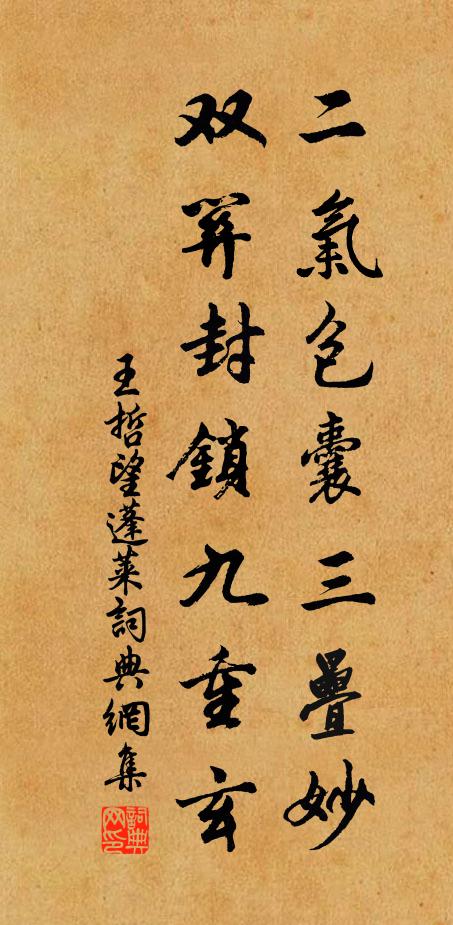 二氣包囊三疊妙
双關封鎖九重玄
王哲望蓬萊詞典網集
詞典网印